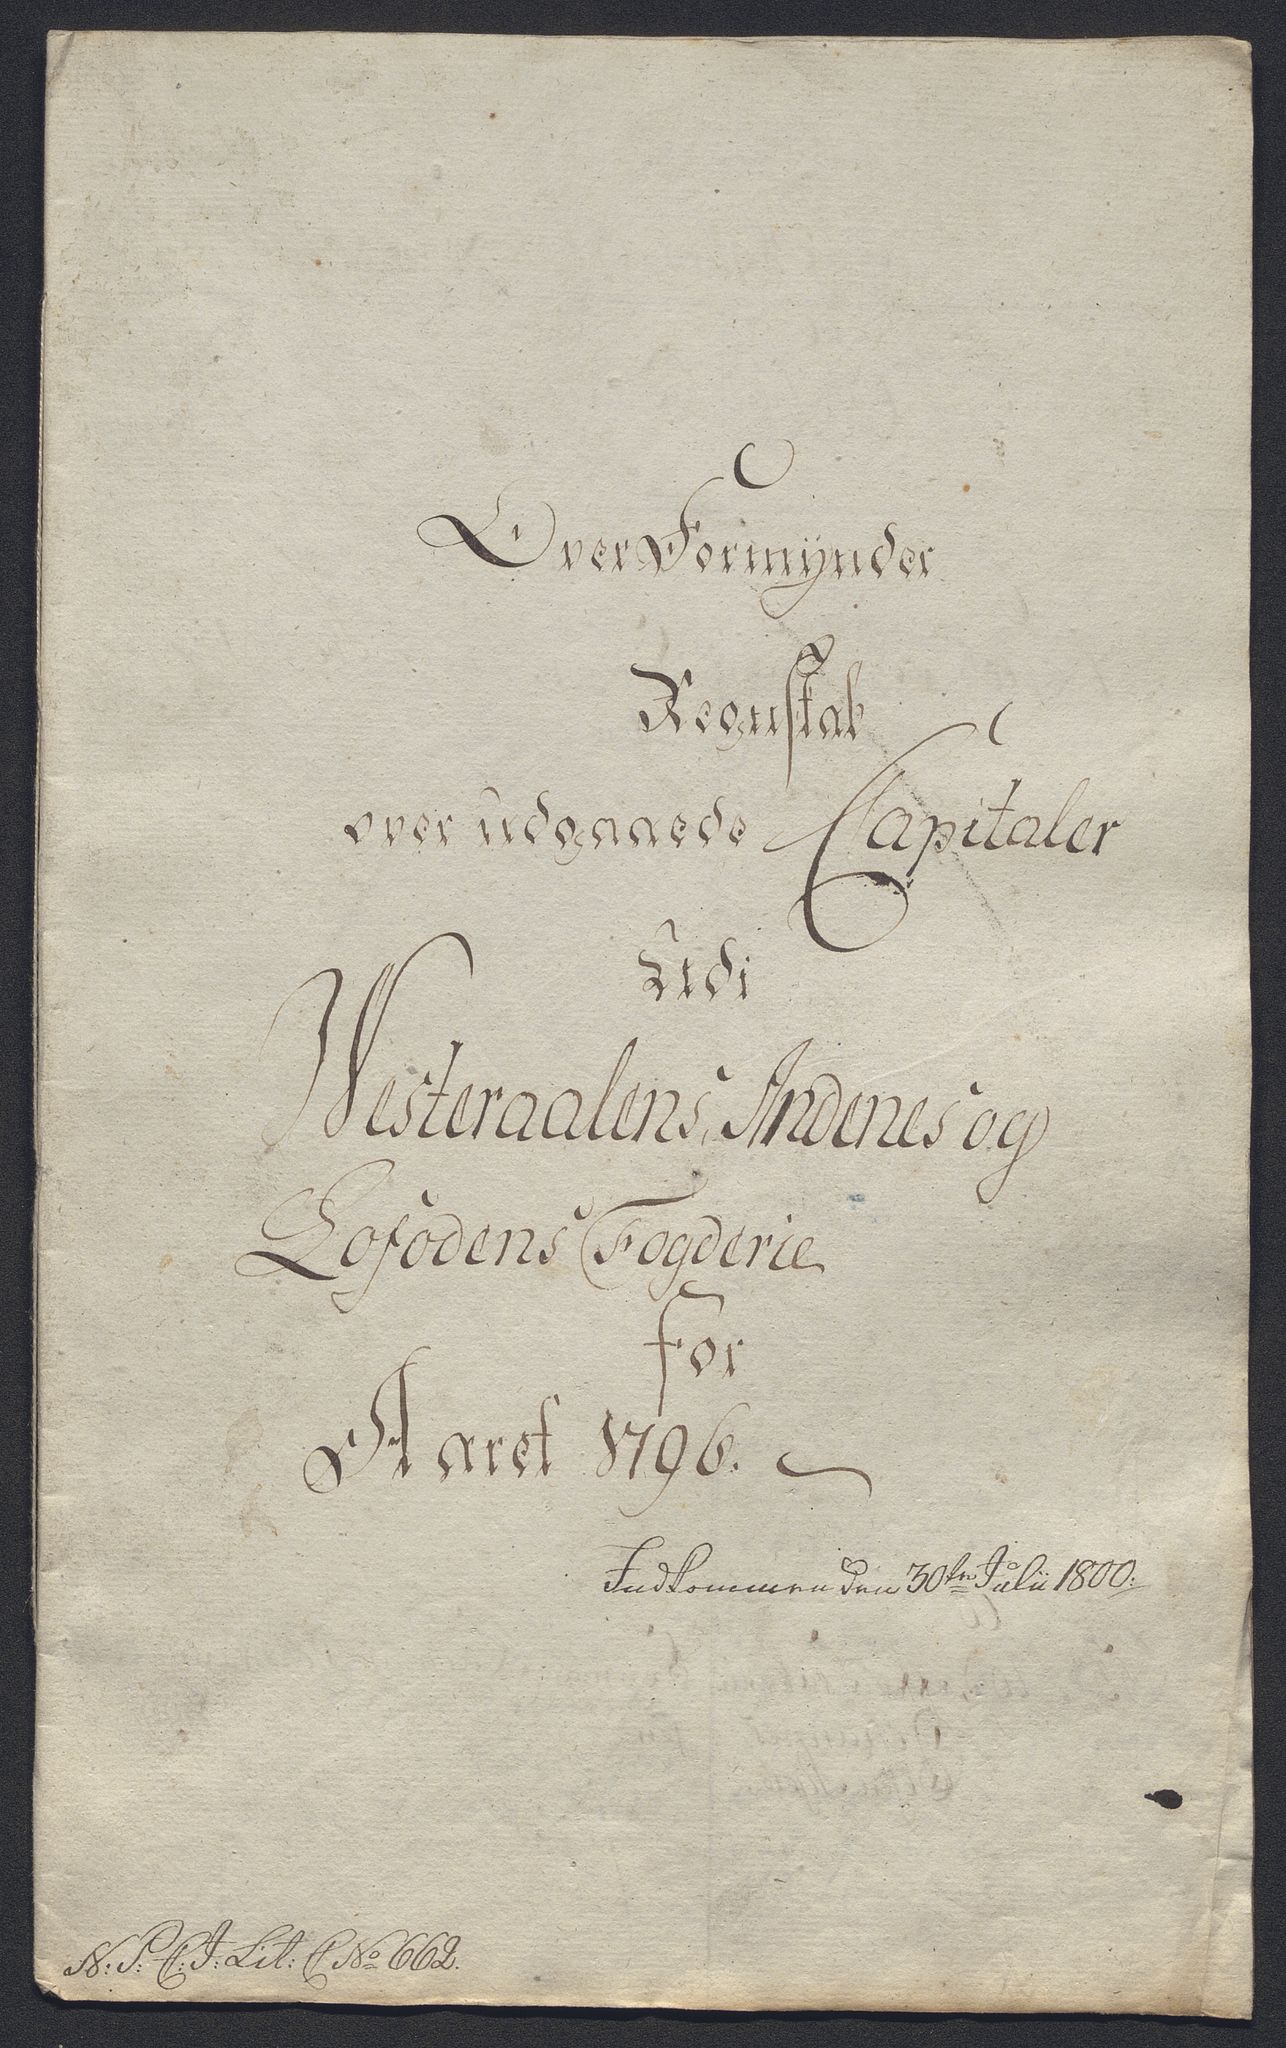 Over Formÿnder
Regnskab
over udgaaede Capitaler
Udi
Westeraalens, Andenes og
Lofodens Fogderie
for
Aaret 1796.
Indkommen den 30te Julii 1800.
N. P. C. J. Lit: C No 662.